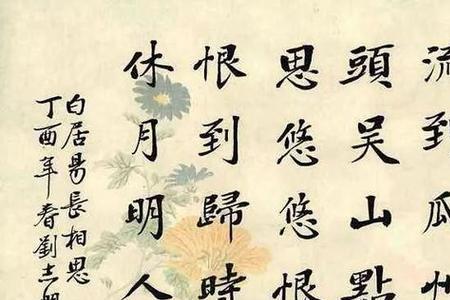 流到瓜
頭吴山點
思悠悠恨
恨到歸時
休月明人
白居易長相思
丁酉年春劉志